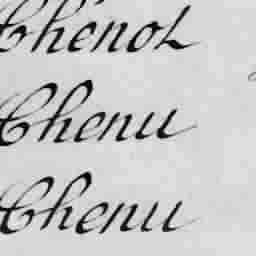 Chénot
Chenu
Chenu